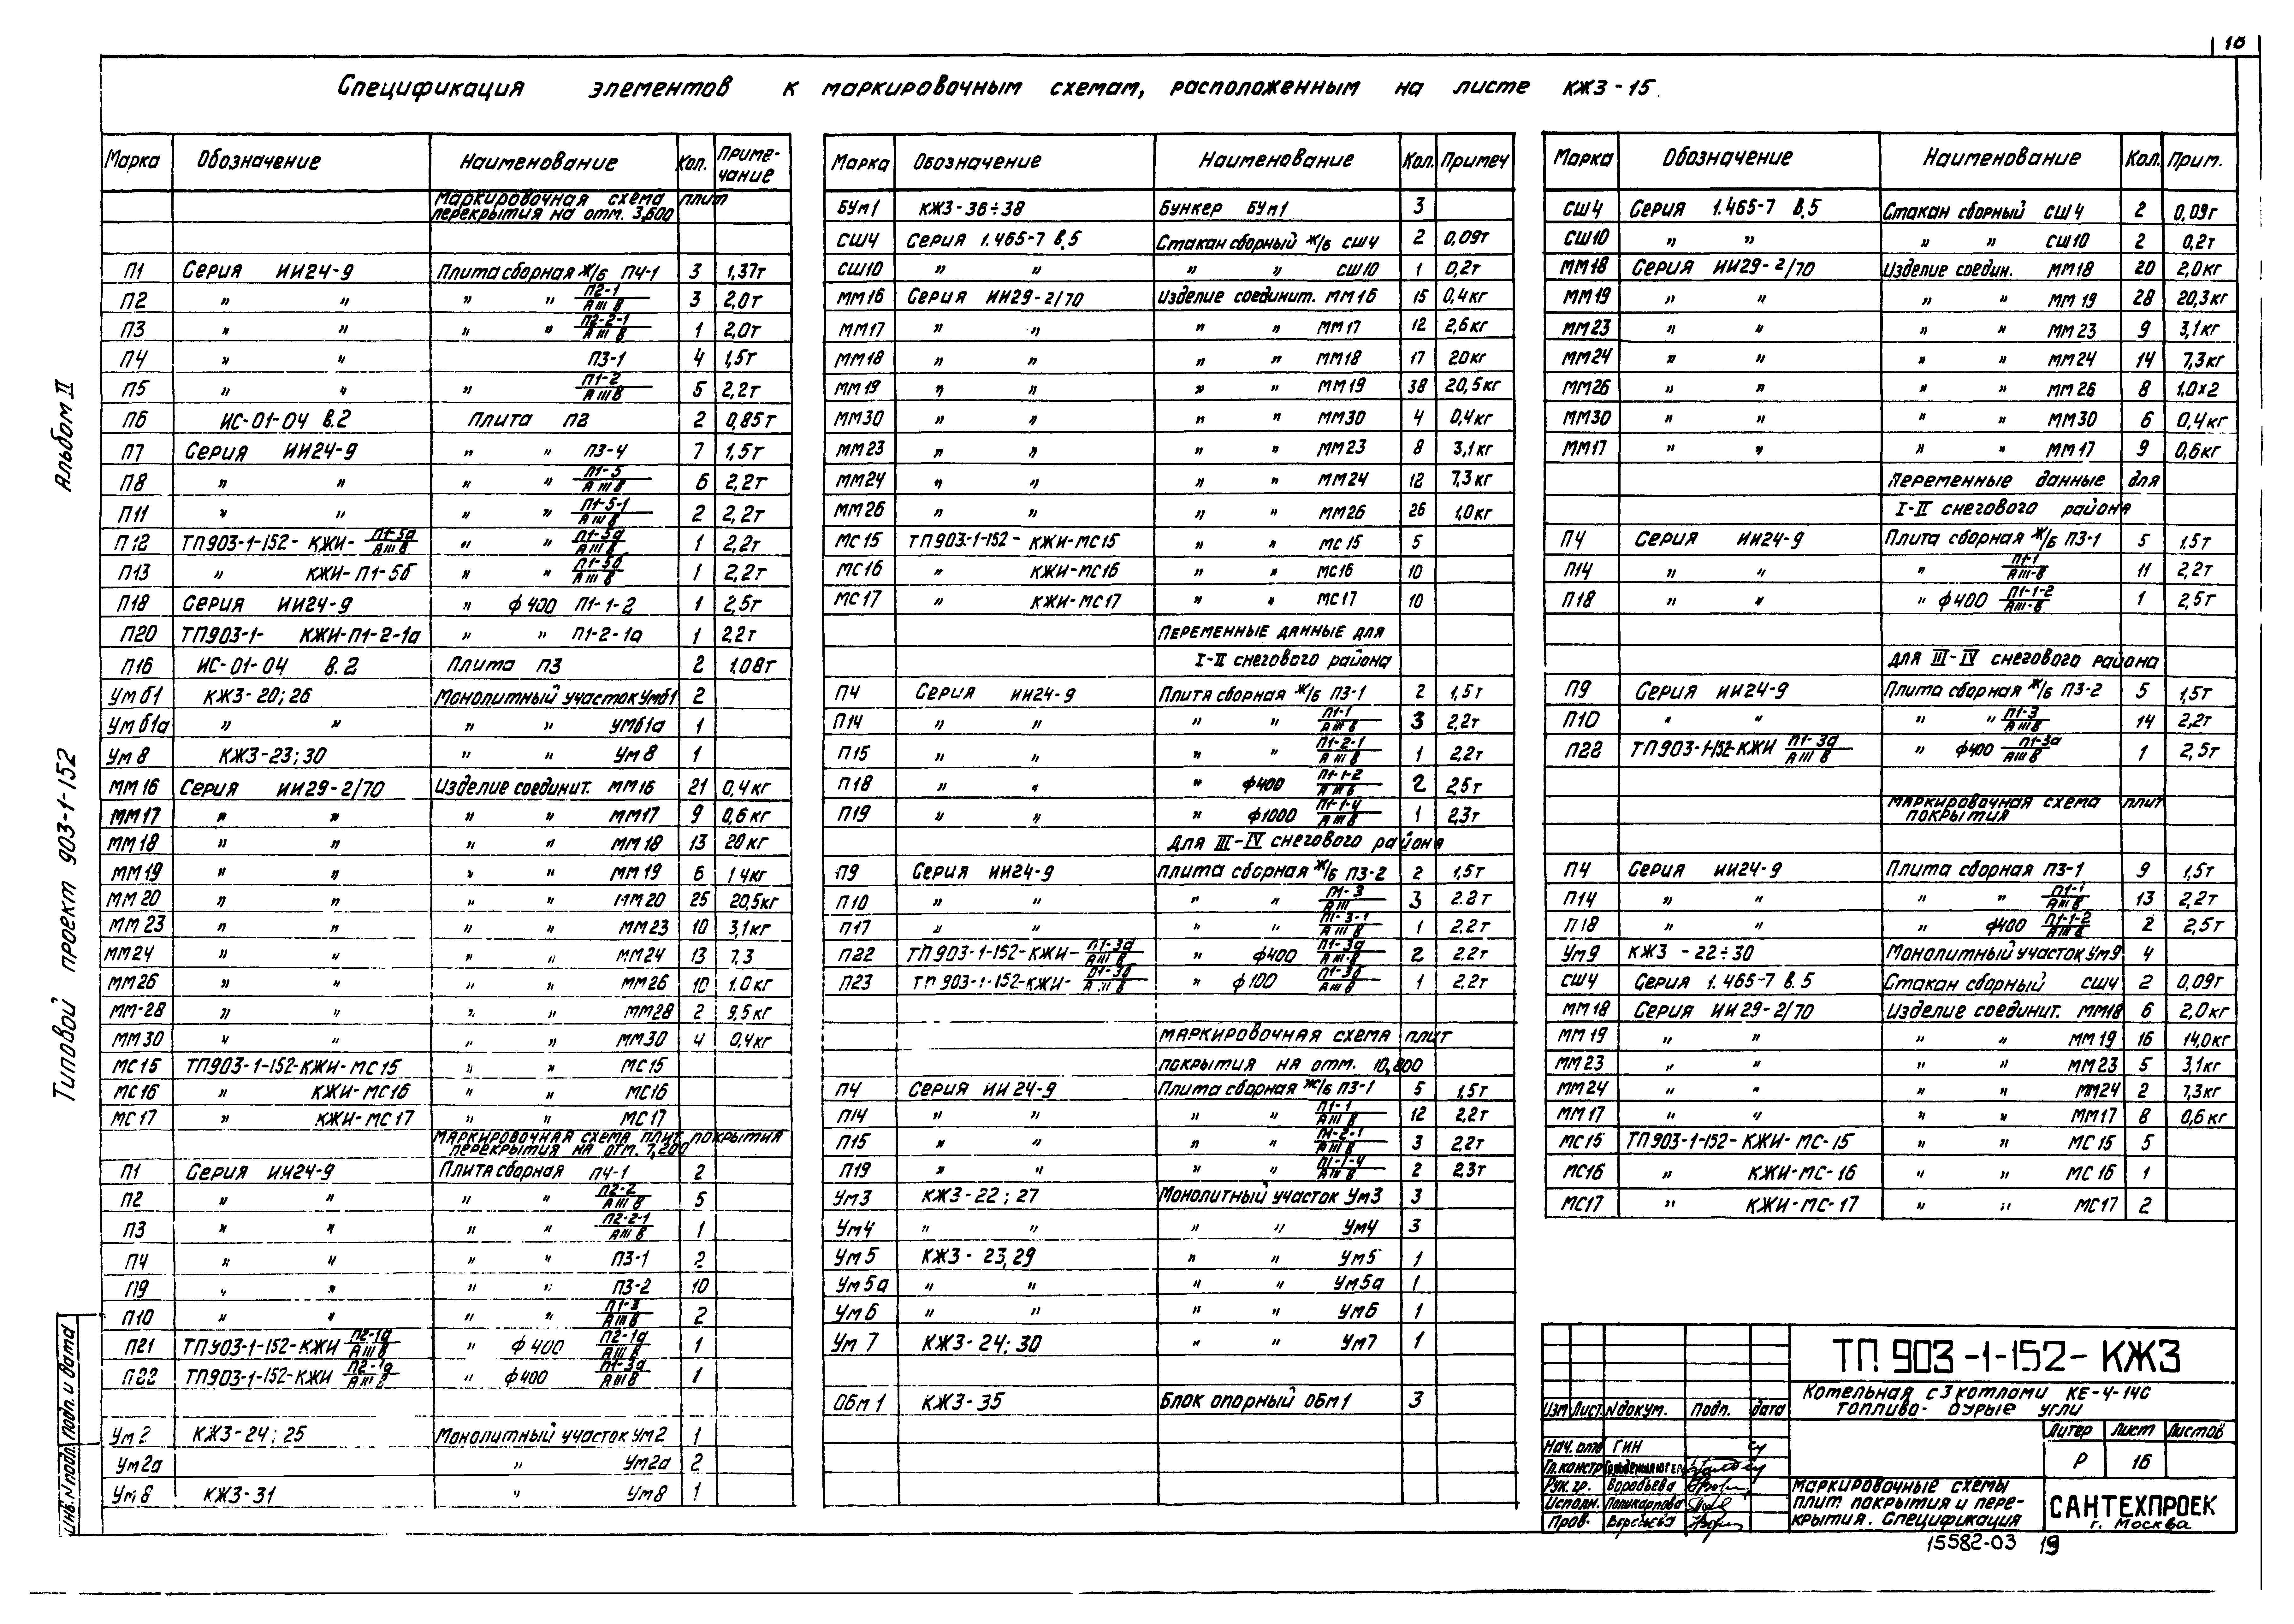 18
Спецификация элементов к маркировочным схемам, расположенным на листе КЖ3-15.
Альбом II
Типовой проект 903-1-152
Инв.№подл. Подп. и дата
Марка Обозначение Наименование Кол. Приме-чание
Маркировочная схема плит
перекрытия на отм. 3,600
П1 Серия ИИ24-9 Плита сборная ж/б П4-1 3 1,37т
П2 " " " " П2-1/АIIIв 3 2,0т
П3 " " " " П2-2-1/АIIIв 1 2,0т
П4 " " П3-1 4 1,5т
П5 " " " П1-2/АIIIв 5 2,2т
П6 ИС-01-04 в.2 Плита П2 2 0,85т
П7 Серия ИИ24-9 " " П3-4 7 1,5т
П8 " " " " П1-5/АIIIв 6 2,2т
П11 " " " " П1-5-1/АIIIв 2 2,2т
П12 ТП903-1-152-КЖИ-П1-5а/АIIIв " " П1-5а/АIIIв 1 2,2т
П13 " КЖИ-П1-5б " " П1-5б/АIIIв 1 2,2т
П18 Серия ИИ24-9 " ф400 П1-1-2 1 2,5т
П20 ТП903-1- КЖИ-П1-2-1а " " П1-2-1а 1 2,2т
П16 ИС-01-04 в.2 Плита П3 2 1.08т
Умб1 КЖ3-20;26 Монолитный участок Умб1 2
Умб1а " " " " Умб1а 1
Ум8 КЖ3-23;30 " " Ум8 1
ММ16 Серия ИИ29-2/70 Изделие соединит. ММ16 21 0,4кг
ММ17 " " " " ММ17 9 0,6кг
ММ18 " " " " ММ18 13 20кг
ММ19 " " " " ММ19 6 14кг
ММ20 " " " " ММ20 25 20,5кг
ММ23 " " " " ММ23 10 3,1кг
ММ24 " " " " ММ24 13 7,3
ММ26 " " " " ММ26 10 1.0кг
ММ-28 " " " " ММ28 2 9,5кг
ММ30 " " " " ММ30 4 0,4кг
МС15 ТП903-1-152-КЖИ-МС15 " " МС15
МС16 " КЖИ-МС16 " " МС16
МС17 " КЖИ-МС17 " " МС17
Маркировочная схема плит покрытия
перекрытия на отм. 7,200
П1 Серия ИИ24-9 Плита сборная П4-1 2
П2 " " " " П2-2/АIIIв 5
П3 " " " " П2-2-1/АIIIв 1
П4 " " " " П3-1 2
П9 " " " " П3-2 10
П10 " " " " П1-3/АIIIв 2
П21 ТП903-1-152-КЖИ П2-1а/АIIIв " ф400 П2-1а/АIIIв 1
П22 ТП903-1-152-КЖИ П2-1а/АIIIв " ф400 П1-3а/АIIIв 1
Ум2 КЖ3-24;25 Монолитный участок Ум2 1
Ум2а " Ум2а 2
Ум8 КЖ3-31 " Ум8 1
Марка Обозначение Наименование Кол. Примеч
БУм1 КЖ3-36÷38 Бункер БУм1 3
СШ4 Серия 1.465-7 в.5 Стакан сборный ж/б СШ4 2 0,09т
СШ10 " " " " СШ10 1 0,2т
ММ16 Серия ИИ29-2/70 Изделие соединит. ММ16 15 0,4кг
ММ17 " " " " ММ17 12 2,6кг
ММ18 " " " " ММ18 17 20кг
ММ19 " " " " ММ19 38 20,5кг
ММ30 " " " " ММ30 4 0,4кг
ММ23 " " " " ММ23 8 3,1кг
ММ24 " " " " ММ24 12 7,3кг
ММ26 " " " " ММ26 26 1,0кг
МС15 ТП903-1-152-КЖИ-МС15 " " МС15 5
МС16 " КЖИ-МС16 " " МС16 10
МС17 " КЖИ-МС17 " " МС17 10
Переменные данные для
I-II снегового района
П4 Серия ИИ24-9 Плита сборная ж/б П3-1 2 1,5т
П14 " " " " П1-1/АIIIв 3 2,2т
П15 " " " " П1-2-1/АIIIв 1 2,2т
П18 " " " ф400 П1-1-2/АIIIв 2 2,5т
П19 " " " ф1000 П1-1-4/АIIIв 1 2,3т
Для III-IV снегового района
П9 Серия ИИ24-9 Плита сборная ж/б П3-2 2 1,5т
П10 " " " " П1-3/АIII 3 2.2т
П17 " " " " П1-3-1/АIIIв 1 2.2т
П22 ТП903-1-152-КЖИ-П1-3а/АIIIв " ф400 П1-3а/АIII-в 2 2.2т
П23 ТП903-1-152-КЖИ-П1-3б/АIIIв " ф100 П1-3б/АIIIв 1 2,2т
Маркировочная схема плит
покрытия на отм. 10,800
П4 Серия ИИ24-9 Плита сборная ж/б П3-1 5 1,5т
П14 " " " " П1-1/АIIIв 12 2,2т
П15 " " " " П1-2-1/АIIIв 3 2,2т
П19 " " " " П1-1-4/АIIIв 2 2,3т
Ум3 КЖ3-22;27 Монолитный участок Ум3 3
Ум4 " " " " Ум4 3
Ум5 КЖ3-23,29 " " Ум5 1
Ум5а " " " " Ум5а 1
Ум6 " " " " Ум6 1
Ум7 КЖ3-24;30 " " Ум7 1
ОБм1 КЖ3-35 Блок опорный ОБм1 3
Марка Обозначение Наименование Кол. Прим.
СШ4 Серия 1.465-7 в.5 Стакан сборный СШ4 2 0,09т
СШ10 " " " " СШ10 2 0,2т
ММ18 Серия ИИ29-2/70 Изделие соедин. ММ18 20 2,0кг
ММ19 " " " " ММ19 28 20,3кг
ММ23 " " " " ММ23 9 3,1кг
ММ24 " " " " ММ24 14 7,3кг
ММ26 " " " " ММ26 8 1,0х2
ММ30 " " " " ММ30 6 0,4кг
ММ17 " " " " ММ17 9 0,6кг
Переменные данные для
I-II снегового района
П4 Серия ИИ24-9 Плита сборная ж/б П3-1 5 1.5т
П14 " " " П1-1/АIII-в 11 2,2т
П18 " " " ф400 П1-1-2/АIII-в 1 2,5т
Для III-IV снегового района
П9 Серия ИИ24-9 Плита сборная ж/б П3-2 5 1,5т
П10 " " " " П1-3/АIIIв 14 2,2т
П22 ТП903-1-152-КЖИ П1-3а/АIIIв " ф400 П1-3а/АIIIв 1 2,5т
Маркировочная схема плит
покрытия
П4 Серия ИИ24-9 Плита сборная П3-1 9 1,5т
П14 " " " " П1-1/АIIIв 13 2,2т
П18 " " " ф400 П1-1-2/АIIIв 2 2,5т
Ум9 КЖ3-22÷30 Монолитный участок Ум9 4
СШ4 Серия 1.465-7 в.5 Стакан сборный СШ4 2 0,09т
ММ18 Серия ИИ29-2/70 Изделие соединит. ММ18 6 2,0кг
ММ19 " " " " ММ19 16 14,0кг
ММ23 " " " " ММ23 5 3,1кг
ММ24 " " " " ММ24 2 7,3кг
ММ17 " " " " ММ17 8 0,6кг
МС15 ТП903-1-152-КЖИ-МС-15 " " МС15 5
МС16 " КЖИ-МС-16 " " МС16 1
МС17 " КЖИ-МС-17 " " МС17 2
ТП 903-1-152-КЖ3
Котельная с 3 котлами КЕ-4-14с
Топливо- бурые угли
Изм Лист №докум. Подп. Дата
Литер Лист Листов
Р 16
Нач. отд ГИН
Гл.констр
Рук. гр. Воробьева
Исполн. Поликарпова
Пров. Воробьева
Маркировочные схемы
плит покрытия и пере-
крытия. Спецификация
САНТЕХПРОЕК
г. Москва
15582-03 19